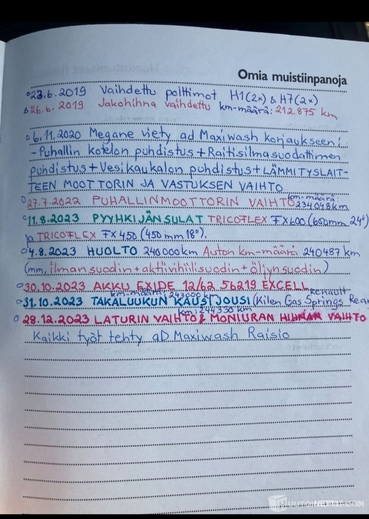 Omia muistiinpanoja
23.6.2019 Vaihdettu polttimot H1(2x) & H7(2x)
26.6.2019 Jakohihna vaihdettu km-määrä: 212.875 km
6.11.2020 Megane viety ad Maxiwash korjaukseen:
- Puhallin kotelon puhdistus + Raitisilmasuodattimen
puhdistus + Vesikaukalon puhdistus + LÄMMITYSLAIT-
TEEN MOOTTORIN JA VASTUKSEN VAIHTO
27.7.2022 PUHALLINMOOTTORIN VAIHTO km-määrä 234048km
11.8.2023 PYYHKIJÄNSULAT TRICOFLEX FX600 (650mm 24")
ja TRICOFLEX FX450 (450mm 18").
4.8.2023 HUOLTO 240000km Auton km-määrä 240487 km
(mm. ilmansuodin + aktiivihiilisuodin + öljynsuodin)
30.10.2023 AKKU EXIDE 12/62 56219 EXCELL
31.10.2023 TAKALUUKUN KAASUJOUSI (Kilen Gas Springs Renault
km: 244330 km
28.12.2023 LATURIN VAIHTO & MONIURAN VAIHTO
Kaikki työt tehty aD Maxiwash Raisio